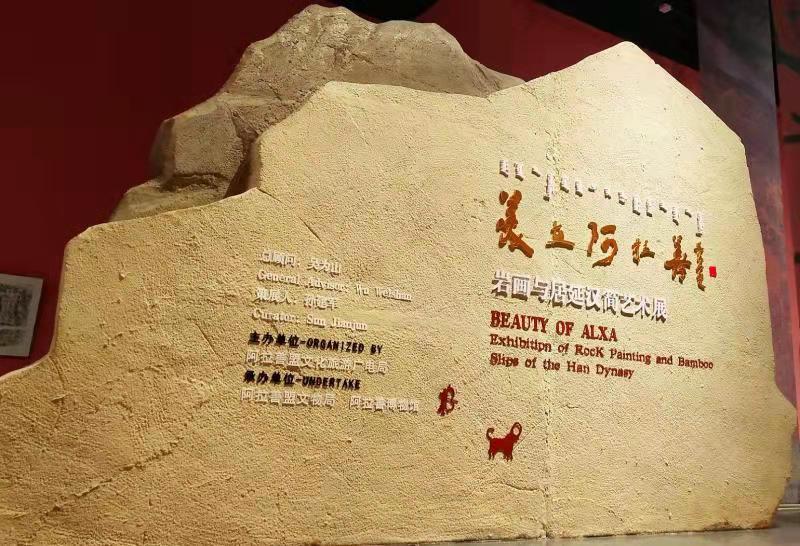 总顾问：吴为山
General Advisor: Wu Weishan
策展人：孙建军
Curator: Sun Jianjun
主办单位-ORGANIZED BY
阿拉善盟文化旅游广电局
承办单位-UNDERTAKE
阿拉善盟文物局 阿拉善博物馆
美在阿拉善
岩画与居延汉简艺术展
BEAUTY OF ALXA
Exhibitipn of RocK Painting and Bamboo
Slips of the Han Dynasty